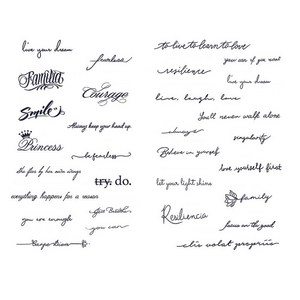 live your dream
fearless
Familia
Courage
Smile
Always keep your head up.
Princess
be fearless
she flies by her own wings
try. do.
everything happens for a reason
you are enough
Just Breathe
you can
Carpe diem
to live to learn to love
you can if you want
resilience
live your dream
live, laugh, love
You'll never walk alone
always
singularity
Believe in yourself
love yourself first
let your light shine
family
Resiliencia
focus on the good
alis volat propriis